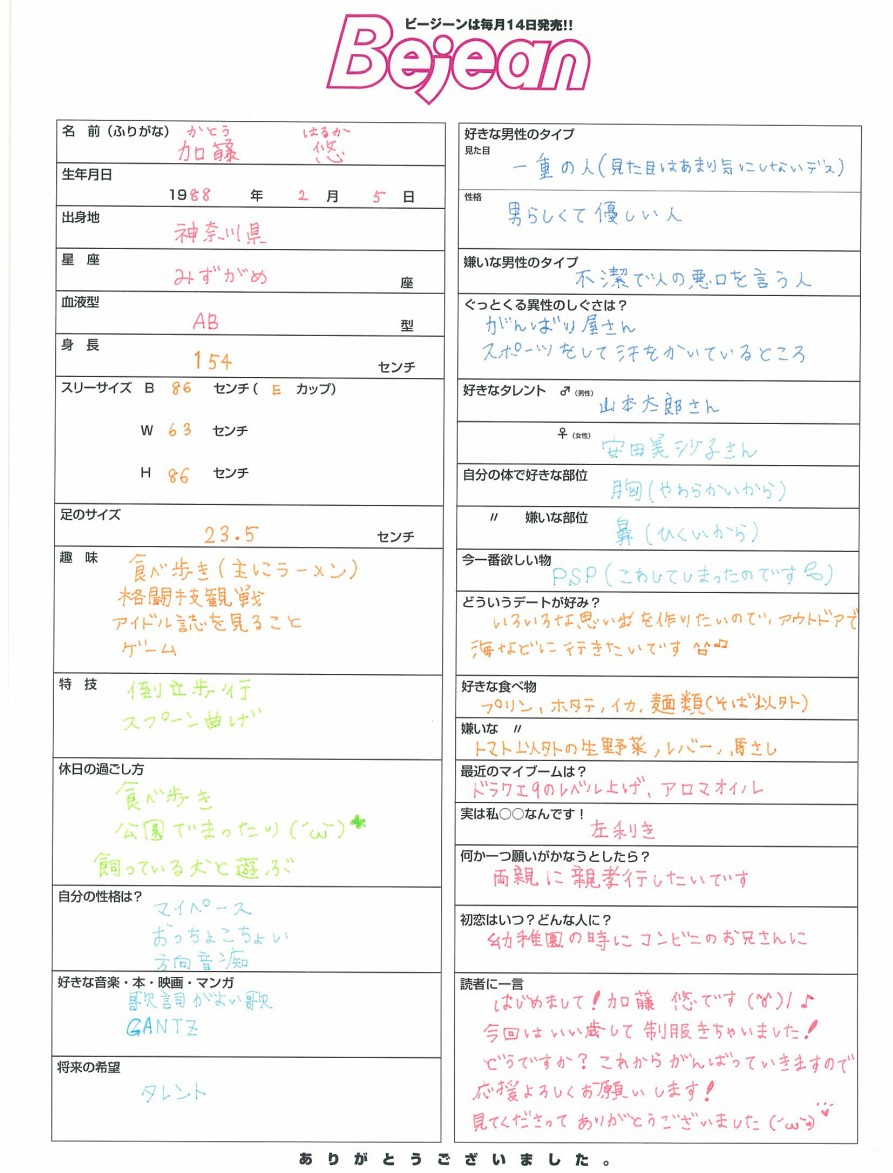 ビージーンは毎月14日発売!!
Bejean
名 前（ふりがな） かとう はるか
加藤 悠
生年月日
1988 年 2 月 5 日
出身地
神奈川県
星 座
みずがめ 座
血液型
AB 型
身 長
154 センチ
スリーサイズ B 86 センチ（ E カップ）
W 63 センチ
H 86 センチ
足のサイズ
23.5 センチ
趣 味
食べ歩き(主にラーメン)
格闘技観戦
アイドル誌を見ること
ゲーム
特 技
倒立歩行
スプーン曲げ
休日の過ごし方
食べ歩き
公園でまったり(´ω`)
飼っている犬と遊ぶ
自分の性格は？
マイペース
おっちょこちょい
方向音痴
好きな音楽・本・映画・マンガ
歌詞がよい歌
GANTZ
将来の希望
タレント
好きな男性のタイプ
見た目
一重の人(見た目はあまり気にしないデス)
性格
男らしくて優しい人
嫌いな男性のタイプ
不潔で人の悪口を言う人
ぐっとくる異性のしぐさは？
がんばり屋さん
スポーツをして汗をかいているところ
好きなタレント ♂（男性）
山本太郎さん
♀（女性）
安田美沙子さん
自分の体で好きな部位
胸(やわらかいから)
〃 嫌いな部位
鼻(ひくいから)
今一番欲しい物
PSP(こわしてしまったのです)
どういうデートが好み？
いろいろな思い出を作りたいので、アウトドアで
海などに行きたいです♫
好きな食べ物
プリン、ホタテ、イカ、麺類(そば以外)
嫌いな 〃
トマト以外の生野菜、レバー、馬さし
最近のマイブームは？
ドラクエ9のレベル上げ、アロマオイル
実は私〇〇なんです！
左利き
何か一つ願いがかなうとしたら？
両親に親孝行したいです
初恋はいつ？どんな人に？
幼稚園の時にコンビニのお兄さんに
読者に一言
はじめまして!加藤 悠です(´∀`)/♪
今回はいい歳して制服きちゃいました!
どうですか?これからがんばっていきますので
応援よろしくお願いします!
見てくださってありがとうございました(´ω`)
ありがとうございました。